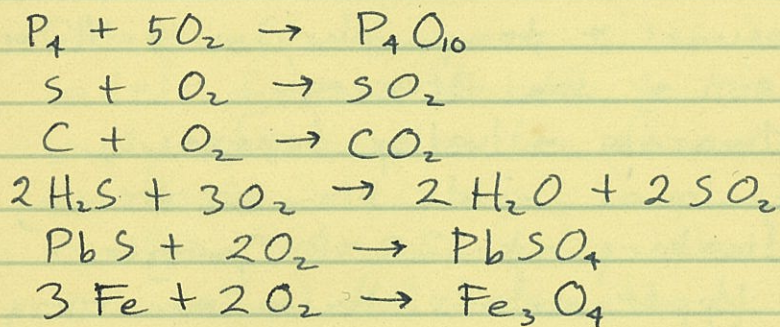 P₄ + 5O₂ → P₄O₁₀
S + O₂ → SO₂
C + O₂ → CO₂
2H₂S + 3O₂ → 2H₂O + 2SO₂
PbS + 2O₂ → PbSO₄
3Fe + 2O₂ → Fe₃O₄